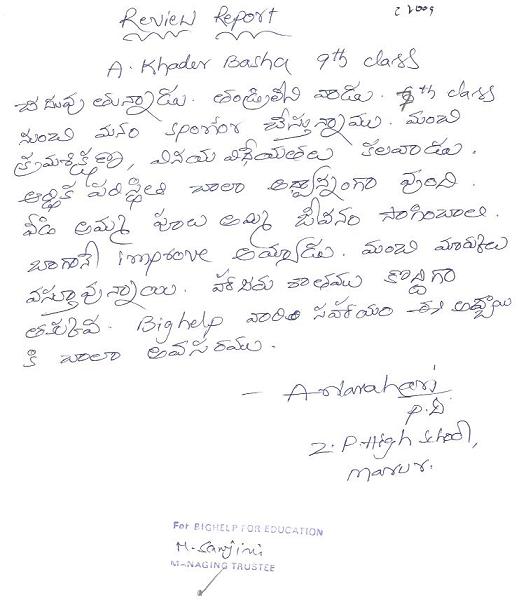 Review Report
2009
A. Khader Basha 9th class
చదువుతున్నాడు. తండ్రిలేని వాడు. 6th class
నుంచి మనం sponsor చేస్తున్నాము. మంచి
క్రమశిక్షణ, వినయ విధేయతలు కలవాడు.
ఆర్థిక పరిస్థితి చాలా అధ్వాన్నంగా వుంది.
వీడి అమ్మ పూలు అమ్మి జీవనం సాగించాలి.
బాగానే improve అయ్యాడు. మంచి మార్కులు
వస్తూవున్నాయి. హాజరు శాతము కొద్దిగా
తక్కువ. Bighelp వారి సహాయం ఈ అబ్బాయి
కి చాలా అవసరము.
- A. Narahari
P.D.
Z. P. High School,
Marur.
For BIGHELP FOR EDUCATION
M. Sanjini
MANAGING TRUSTEE